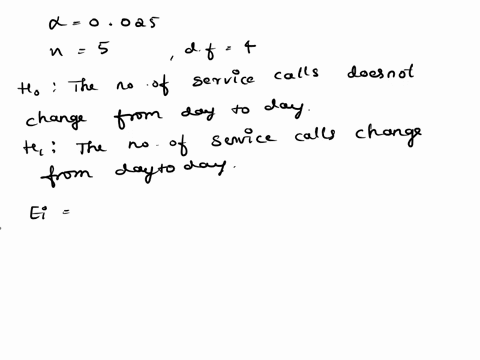 α = 0.025
n = 5 , d.f = 4
H₀ : The no. of service calls doesnot
change from day to day.
H₁ : The no. of service calls change
from day to day.
Ei =